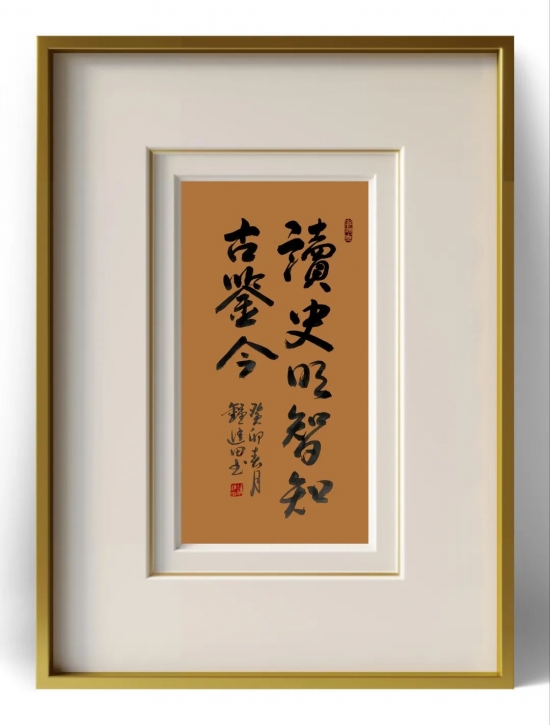 讀史明智知
古鑒今
癸卯春月
鍾進田書